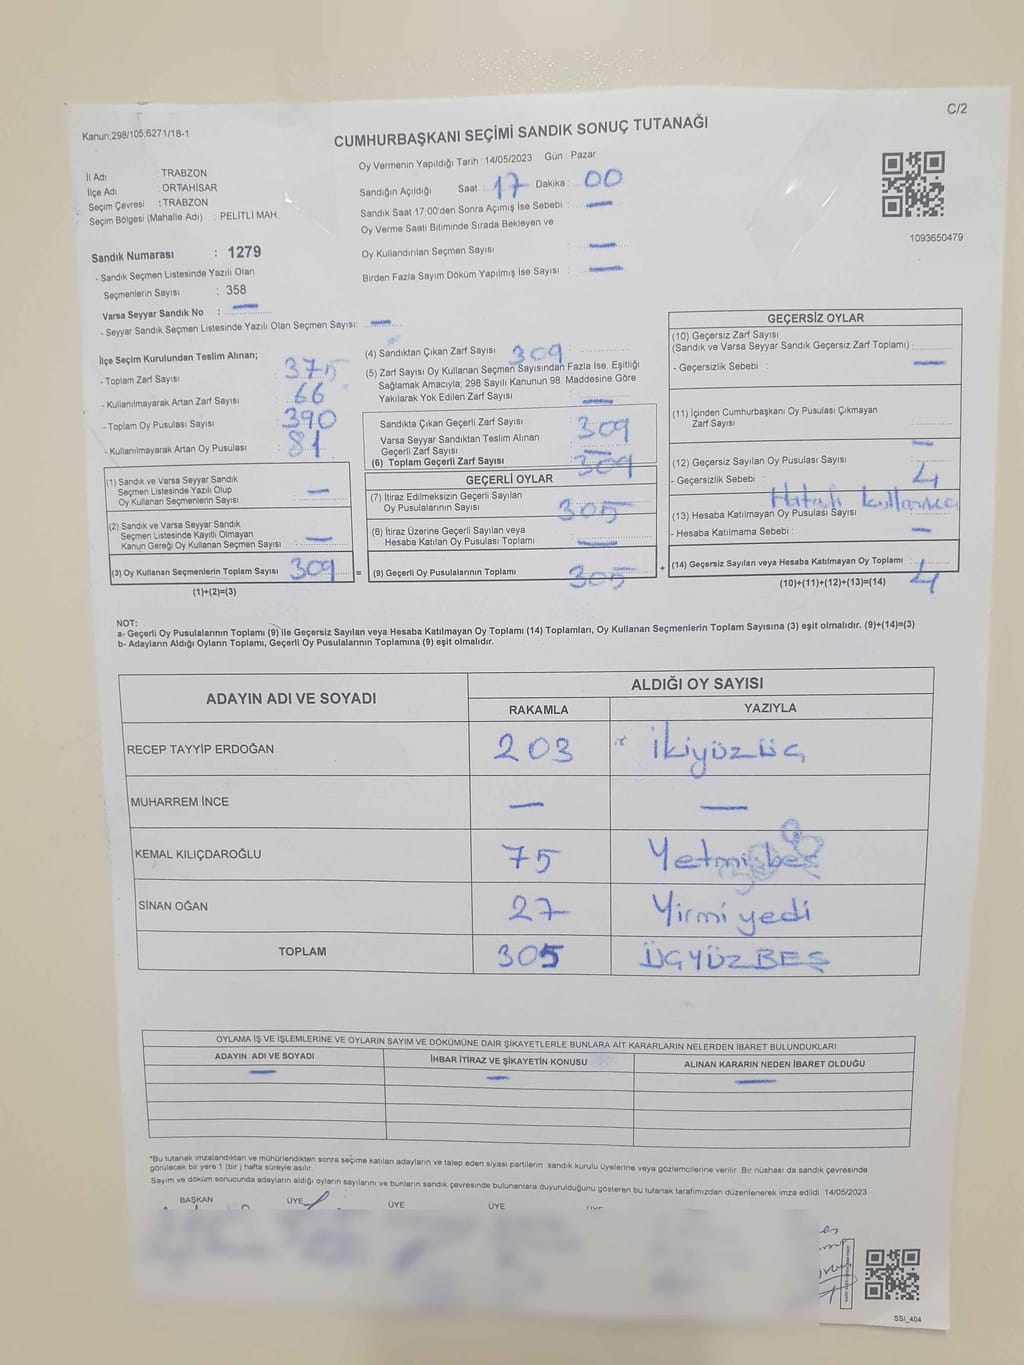 C/2
Kanun;298/105;6271/18-1
CUMHURBAŞKANI SEÇİMİ SANDIK SONUÇ TUTANAĞI
İl Adı : TRABZON
İlçe Adı : ORTAHİSAR
Seçim Çevresi : TRABZON
Seçim Bölgesi (Mahalle Adı) : PELİTLİ MAH.
Oy Vermenin Yapıldığı Tarih : 14/05/2023 Gün : Pazar
Sandığın Açıldığı Saat : 17 Dakika : 00
Sandık Saat 17:00'den Sonra Açımış İse Sebebi : —
Oy Verme Saati Bitiminde Sırada Bekleyen ve
Oy Kullandırılan Seçmen Sayısı : —
Birden Fazla Sayım Döküm Yapılmış İse Sayısı : —
1093650479
Sandık Numarası : 1279
- Sandık Seçmen Listesinde Yazılı Olan
Seçmenlerin Sayısı : 358
Varsa Seyyar Sandık No : —
- Seyyar Sandık Seçmen Listesinde Yazılı Olan Seçmen Sayısı: —
İlçe Seçim Kurulundan Teslim Alınan;
- Toplam Zarf Sayısı : 375
- Kullanılmayarak Artan Zarf Sayısı : 66
- Toplam Oy Pusulası Sayısı : 390
- Kullanılmayarak Artan Oy Pusulası : 81
(1) Sandık ve Varsa Seyyar Sandık
Seçmen Listesinde Yazılı Olup
Oy Kullanan Seçmenlerin Sayısı : —
(2) Sandık ve Varsa Seyyar Sandık
Seçmen Listesinde Kayıtlı Olmayan
Kanun Gereği Oy Kullanan Seçmen Sayısı : —
(3) Oy Kullanan Seçmenlerin Toplam Sayısı 309 =
(1)+(2)=(3)
(4) Sandıktan Çıkan Zarf Sayısı : 309
(5) Zarf Sayısı Oy Kullanan Seçmen Sayısından Fazla İse, Eşitliği
Sağlamak Amacıyla; 298 Sayılı Kanunun 98. Maddesine Göre
Yakılarak Yok Edilen Zarf Sayısı : —
Sandıkta Çıkan Geçerli Zarf Sayısı : 309
Varsa Seyyar Sandıktan Teslim Alınan
Geçerli Zarf Sayısı : —
(6) Toplam Geçerli Zarf Sayısı : 309
GEÇERLİ OYLAR
(7) İtiraz Edilmeksizin Geçerli Sayılan
Oy Pusulalarının Sayısı : 305
(8) İtiraz Üzerine Geçerli Sayılan veya
Hesaba Katılan Oy Pusulası Toplamı : —
(9) Geçerli Oy Pusulalarının Toplamı : 305 +
GEÇERSİZ OYLAR
(10) Geçersiz Zarf Sayısı
(Sandık ve Varsa Seyyar Sandık Geçersiz Zarf Toplamı) :
- Geçersizlik Sebebi : —
(11) İçinden Cumhurbaşkanı Oy Pusulası Çıkmayan
Zarf Sayısı : —
(12) Geçersiz Sayılan Oy Pusulası Sayısı : 4
- Geçersizlik Sebebi :
(13) Hesaba Katılmayan Oy Pusulası Sayısı :
- Hesaba Katılmama Sebebi : —
(14) Geçersiz Sayılan veya Hesaba Katılmayan Oy Toplamı : 4
(10)+(11)+(12)+(13)=(14)
NOT:
a- Geçerli Oy Pusulalarının Toplamı (9) ile Geçersiz Sayılan veya Hesaba Katılmayan Oy Toplamı (14) Toplamları, Oy Kullanan Seçmenlerin Toplam Sayısına (3) eşit olmalıdır. (9)+(14)=(3)
b- Adayların Aldığı Oyların Toplamı, Geçerli Oy Pusulalarının Toplamına (9) eşit olmalıdır.
ADAYIN ADI VE SOYADI
ALDIĞI OY SAYISI
RAKAMLA YAZIYLA
RECEP TAYYİP ERDOĞAN 203 ikiyüzüç
MUHARREM İNCE — —
KEMAL KILIÇDAROĞLU 75 Yetmişbeş
SİNAN OĞAN 27 Yirmi yedi
TOPLAM 305 ÜÇYÜZ BEŞ
OYLAMA İŞ VE İŞLEMLERİNE VE OYLARIN SAYIM VE DÖKÜMÜNE DAİR ŞİKAYETLERLE BUNLARA AİT KARARLARIN NELERDEN İBARET BULUNDUKLARI
ADAYIN ADI VE SOYADI İHBAR İTİRAZ VE ŞİKAYETİN KONUSU ALINAN KARARIN NEDEN İBARET OLDUĞU
— — —
*Bu tutanak imzalandıktan ve mühürlendikten sonra seçime katılan adayların ve talep eden siyasi partilerin sandık kurulu üyelerine veya gözlemcilerine verilir. Bir nüshası da sandık çevresinde
görülecek bir yere 1 (bir) hafta süreyle asılır.
Sayım ve döküm sonucunda adayların aldığı oyların sayılarını ve bunların sandık çevresinde bulunanlara duyurulduğunu gösteren bu tutanak tarafımızdan düzenlenerek imza edildi. 14/05/2023
BAŞKAN ÜYE ÜYE ÜYE
SSI_404